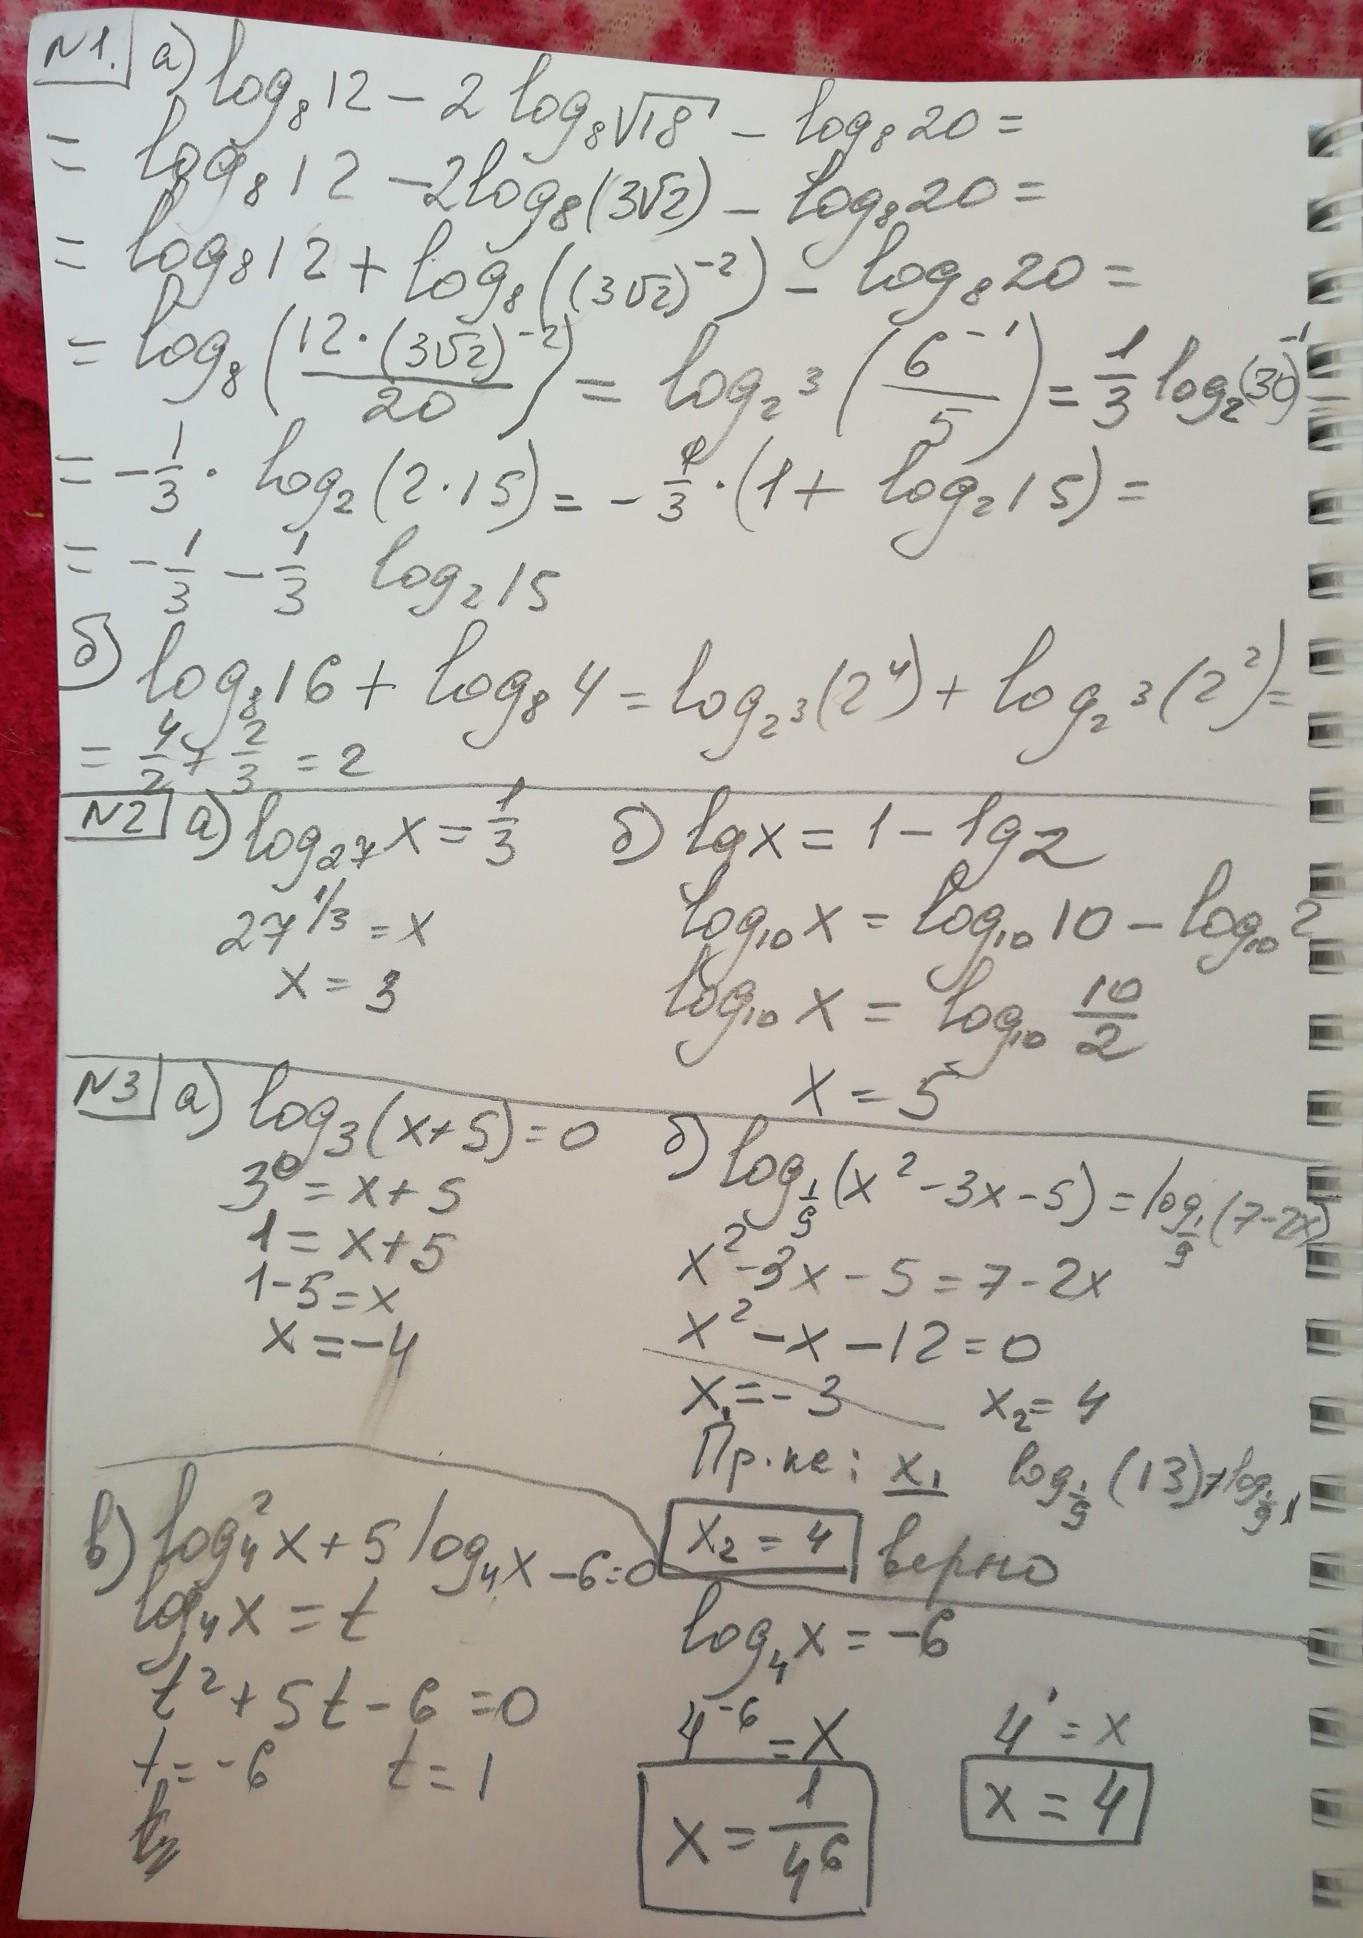 N1. а) log₈12 − 2 log₈√18 − log₈20 =
= log₈12 − 2log₈(3√2) − log₈20 =
= log₈12 + log₈((3√2)⁻²) − log₈20 =
= log₈(12·(3√2)⁻²/20) = log₂³(6⁻¹/5) = 1/3 log₂(30)⁻¹
= −1/3 · log₂(2·15) = −1/3 · (1 + log₂15) =
= −1/3 − 1/3 log₂15
б) log₈16 + log₈4 = log₂³(2⁴) + log₂³(2²) =
= 4/2 + 2/3 = 2
N2 а) log₂₇x = 1/3
27^1/3 = x
x = 3
б) lgx = 1 − lg2
log₁₀x = log₁₀10 − log₁₀2
log₁₀x = log₁₀ 10/2
x = 5
N3 а) log₃(x+5) = 0
3⁰ = x+5
1 = x+5
1−5 = x
x = −4
б) log_1/9(x²−3x−5) = log_1/9(7−2x)
x²−3x−5 = 7−2x
x²−x−12 = 0
x₁ = −3 x₂ = 4
Пр.ка: x₁ log_1/9(13) log_1/9
x₂ = 4 верно
в) log₄²x + 5 log₄x − 6 = 0
log₄x = t
t² + 5t − 6 = 0
t = −6 t = 1
log₄x = −6
4⁻⁶ = x 4¹ = x
x = 1/4⁶ x = 4